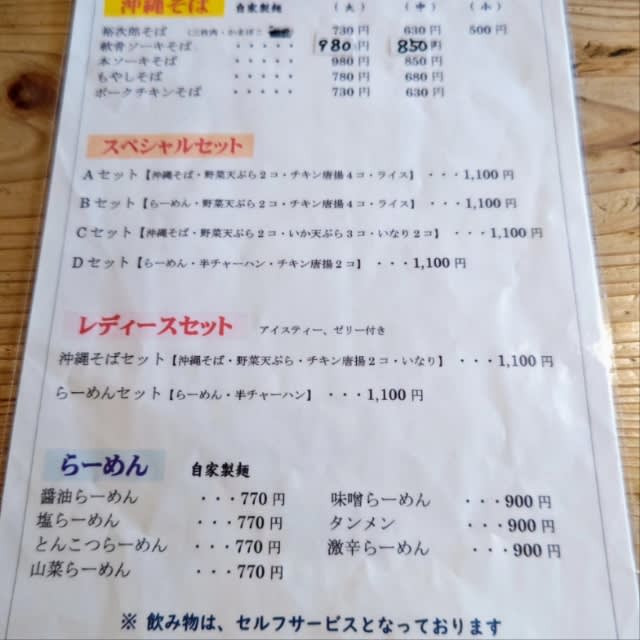 沖縄そば 自家製麺 (大) (中) (小)
裕次郎そば (三枚肉・かまぼこ 730円 630円 500円
軟骨ソーキそば ・・・・・ 980円 850円
本ソーキそば ・・・・・ 980円 850円
もやしそば ・・・・・ 780円 680円
ポークチキンそば ・・・・・ 730円 630円
スペシャルセット
Aセット【沖縄そば・野菜天ぷら2コ・チキン唐揚4コ・ライス】 ・・・1,100円
Bセット【らーめん・野菜天ぷら2コ・チキン唐揚4コ・ライス】 ・・・1,100円
Cセット【沖縄そば・野菜天ぷら2コ・いか天ぷら3コ・いなり2コ】 ・・・1,100円
Dセット【らーめん・半チャーハン・チキン唐揚2コ】 ・・・1,100円
レディースセット アイスティー、ゼリー付き
沖縄そばセット【沖縄そば・野菜天ぷら・チキン唐揚2コ・いなり】 ・・・1,100円
らーめんセット【らーめん・半チャーハン】 ・・・1,100円
らーめん 自家製麺
醤油らーめん ・・・770円 味噌らーめん ・・・900円
塩らーめん ・・・770円 タンメン ・・・900円
とんこつらーめん ・・・770円 激辛らーめん ・・・900円
山菜らーめん ・・・770円
※ 飲み物は、セルフサービスとなっております